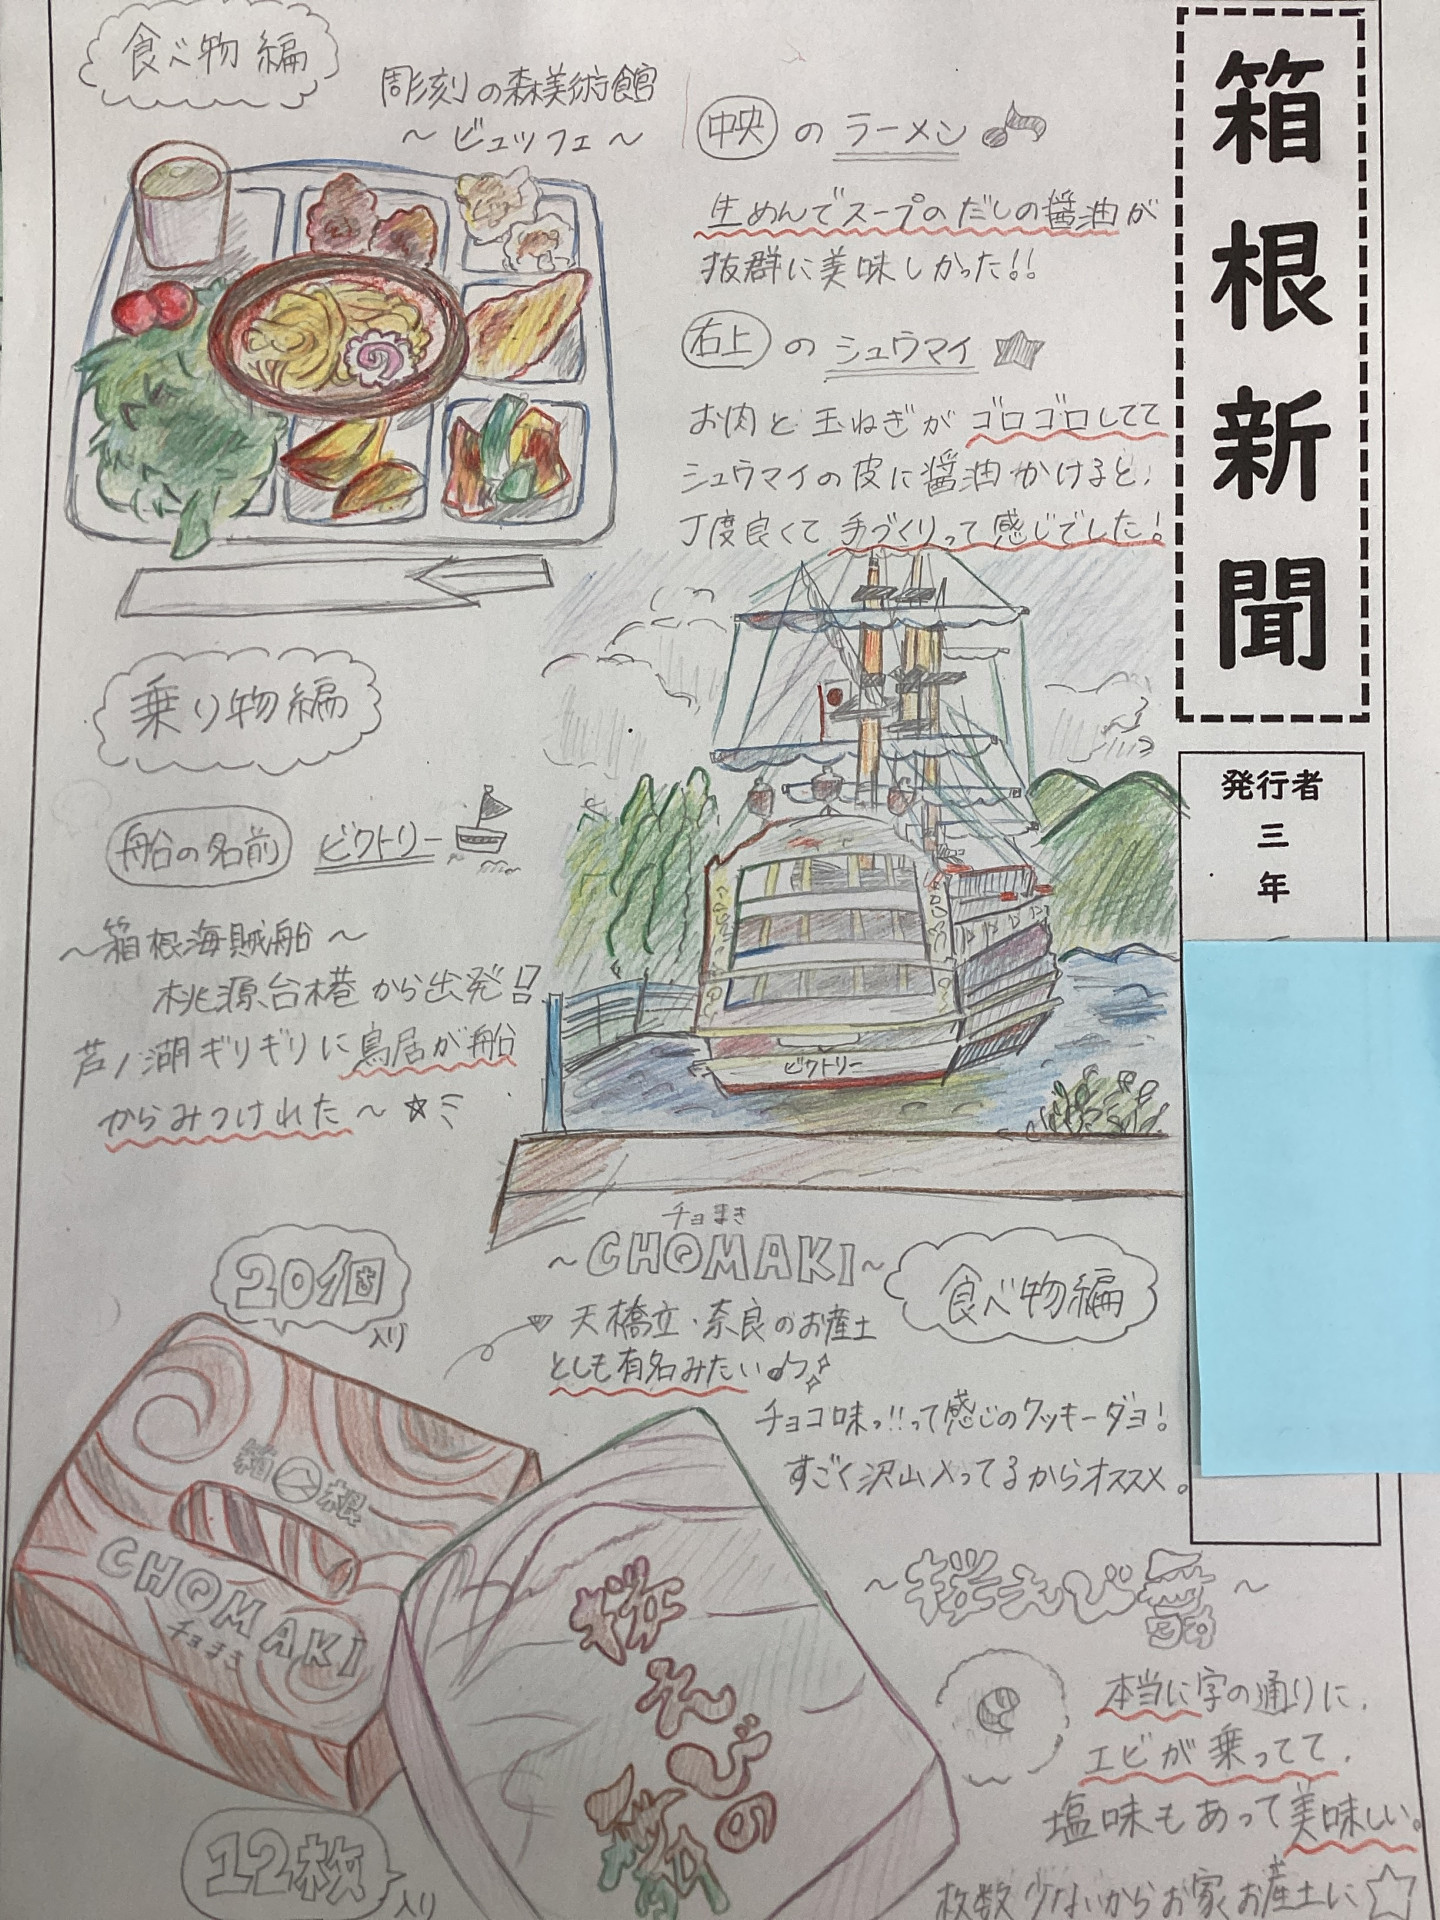 箱根新聞
発行者
三年
食べ物編
彫刻の森美術館
～ビュッフェ～
中央のラーメン
生めんでスープのだしの醤油が
抜群に美味しかった!!
右上のシュウマイ
お肉と玉ねぎがゴロゴロしてて
シュウマイの皮に醤油かけると、
丁度良くて手づくりって感じでした!
乗り物編
船の名前 ビクトリー
～箱根海賊船～
桃源台港から出発!!
芦ノ湖ギリギリに鳥居が船
からみつけれた～☆ミ
ビクトリー
食べ物編
チョまき
～CHOMAKI～
天橋立・奈良のお産土
としも有名みたい♪
チョコ味っ!!って感じのクッキーダヨ!
すごく沢山入ってるからオススメ。
20個
入り
箱根
CHOMAKI
チョまき
～桜えび～
本当に字の通りに、
エビが乗ってて、
塩味もあって美味しい。
枚数少ないからお家お産土に☆
桜えびの
12枚
入り